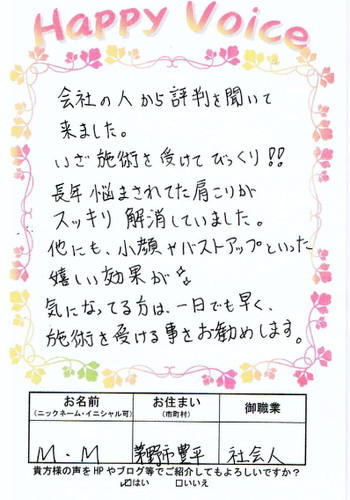 Happy Voice
会社の人から評判を聞いて
来ました。
いざ施術を受けてびっくり!!
長年悩まされてた肩こりが
スッキリ解消していました。
他にも、小顔やバストアップといった
嬉しい効果が
気になってる方は、一日でも早く、
施術を受ける事をお勧めします。
お名前 お住まい 御職業
(ニックネーム・イニシャル可) (市町村)
M・M 茅野市豊平 社会人
貴方様の声をHPやブログ等でご紹介してもよろしいですか?
☑はい □いいえ